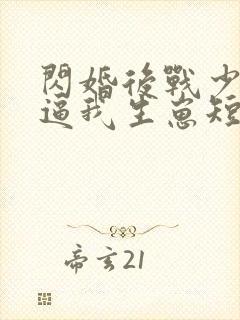 閃婚後戰少
逼我生崽短
帝玄21